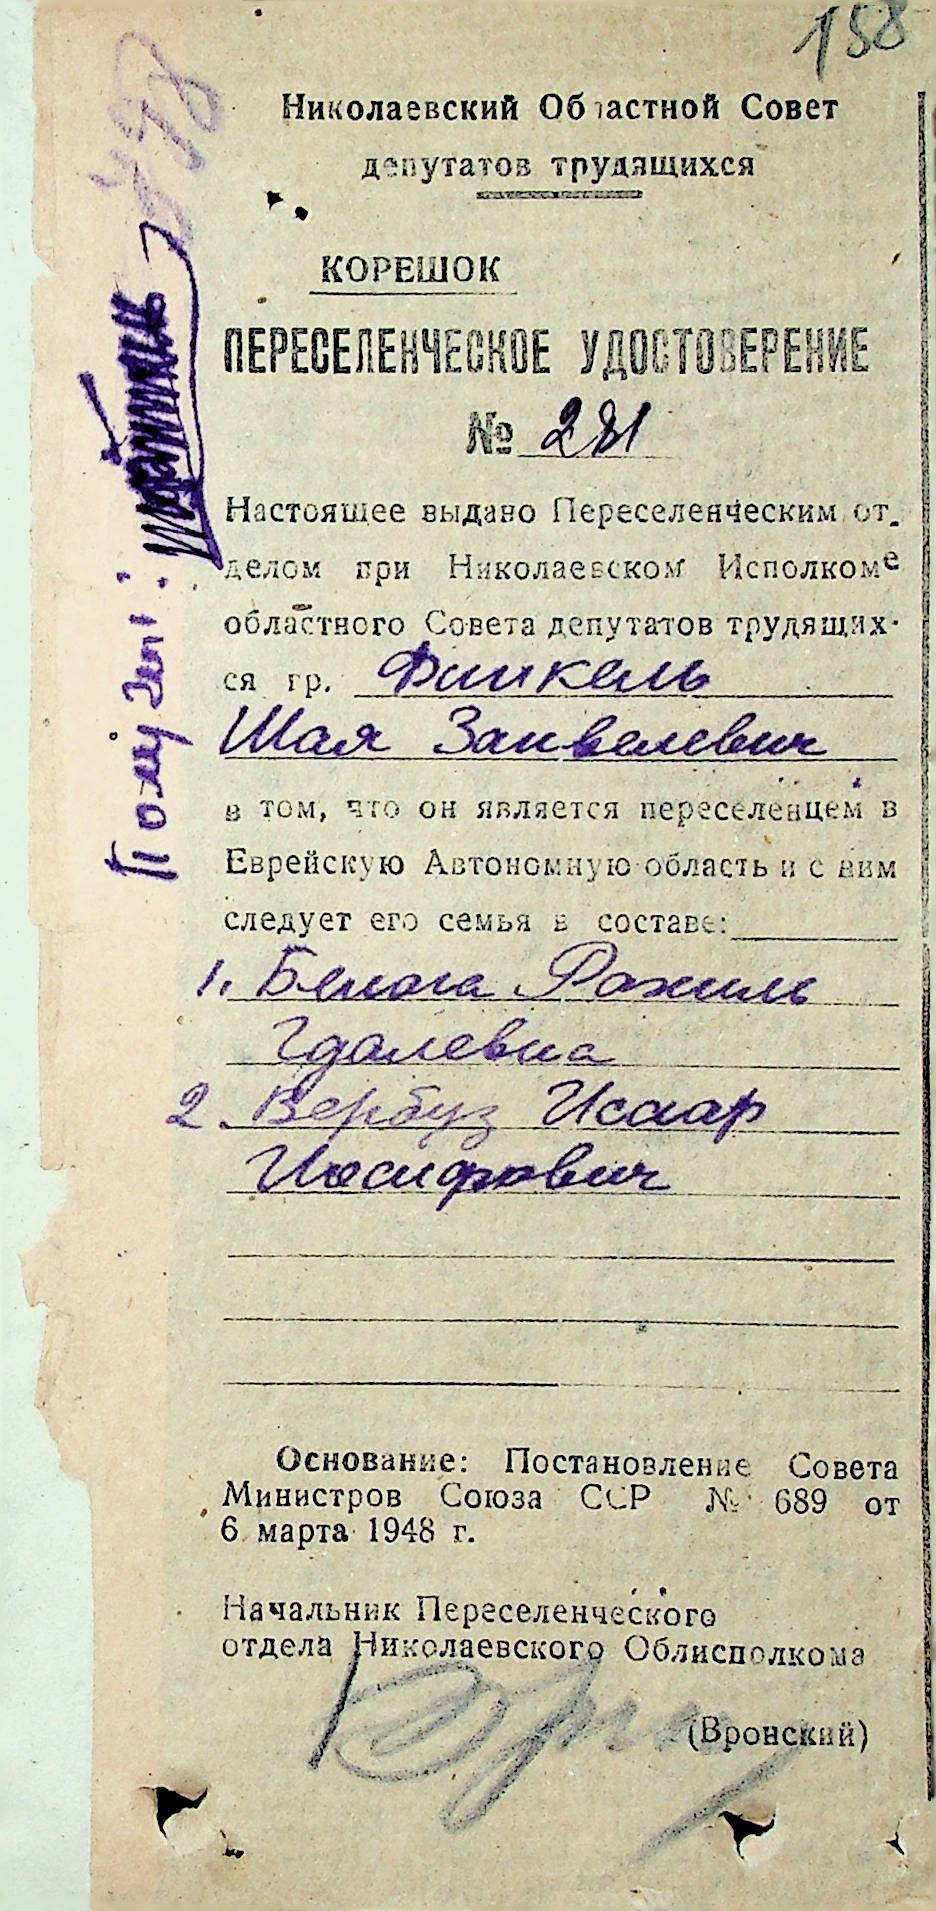 158
Николаевский Областной Совет
депутатов трудящихся
КОРЕШОК
ПЕРЕСЕЛЕНЧЕСКОЕ УДОСТОВЕРЕНИЕ
№ 281
Настоящее выдано Переселенческим от-
делом при Николаевском Исполкоме
областного Совета депутатов трудящих-
ся гр. Финкель
Шая Занвелевич
в том, что он является переселенцем в
Еврейскую Автономную область и с ним
следует его семья в составе:
1. Рохиль
Гдалевна
2. Вербуз Исаар
Иосифович
Основание: Постановление Совета
Министров Союза ССР № 689 от
6 марта 1948 г.
Начальник Переселенческого
отдела Николаевского Облисполкома
(Вронский)